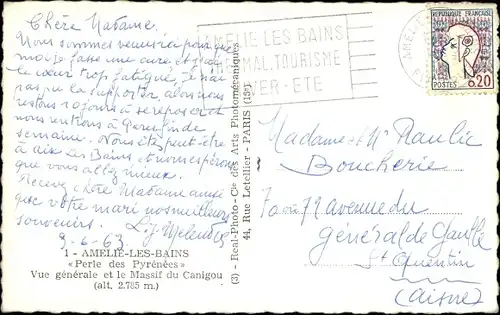 Chère Madame.
Nous sommes venus ici pour que
moi je fasse une cure, et j'ai
le cœur trop fatigué, je n'ai
pas pu la supporter, alors nous
restons 10 jours à se reposer et
nous rentrons à Paris fin de
semaine. Nous êtes peut-être
à aix Les Bains et nous espérons
que vous allez mieux.
Recevez chère Madame ainsi
que votre mari nos meilleurs
souvenirs.
9-6-63
1 - AMÉLIE-LES-BAINS
«Perle des Pyrénées»
Vue générale et le Massif du Canigou
(alt. 2.785 m.)
(3) - Real-Photo - Cie des Arts Photomécaniques
44, Rue Letellier - PARIS (15e)
AMELIE LES BAINS
THERMAL.TOURISME
HIVER-ETE
AMELIE
REPUBLIQUE FRANÇAISE
POSTES 0,20
Madame et Mr Raulic
Boucherie
70 ou 72 avenue du
général de Gaulle
St Quentin
(Aisne)